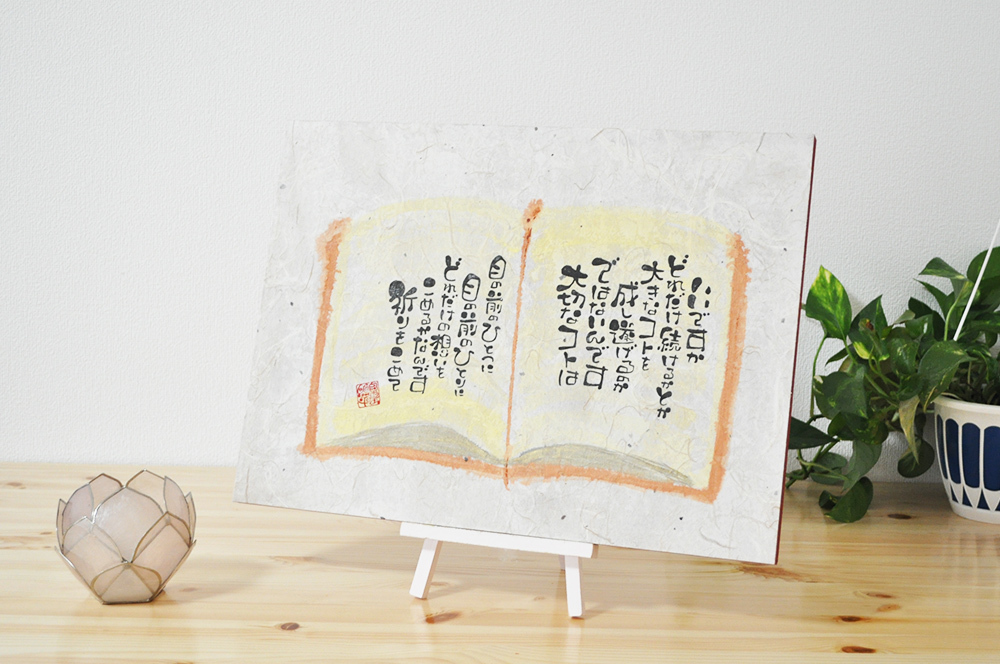 いいですか
どれだけ続けるかとか
大きなコトを
成し遂げるのか
ではないんです
大切なコトは
目の前のひとつに
目の前のひとりに
どれだけの想いを
こめるかなんです
祈りをこめて